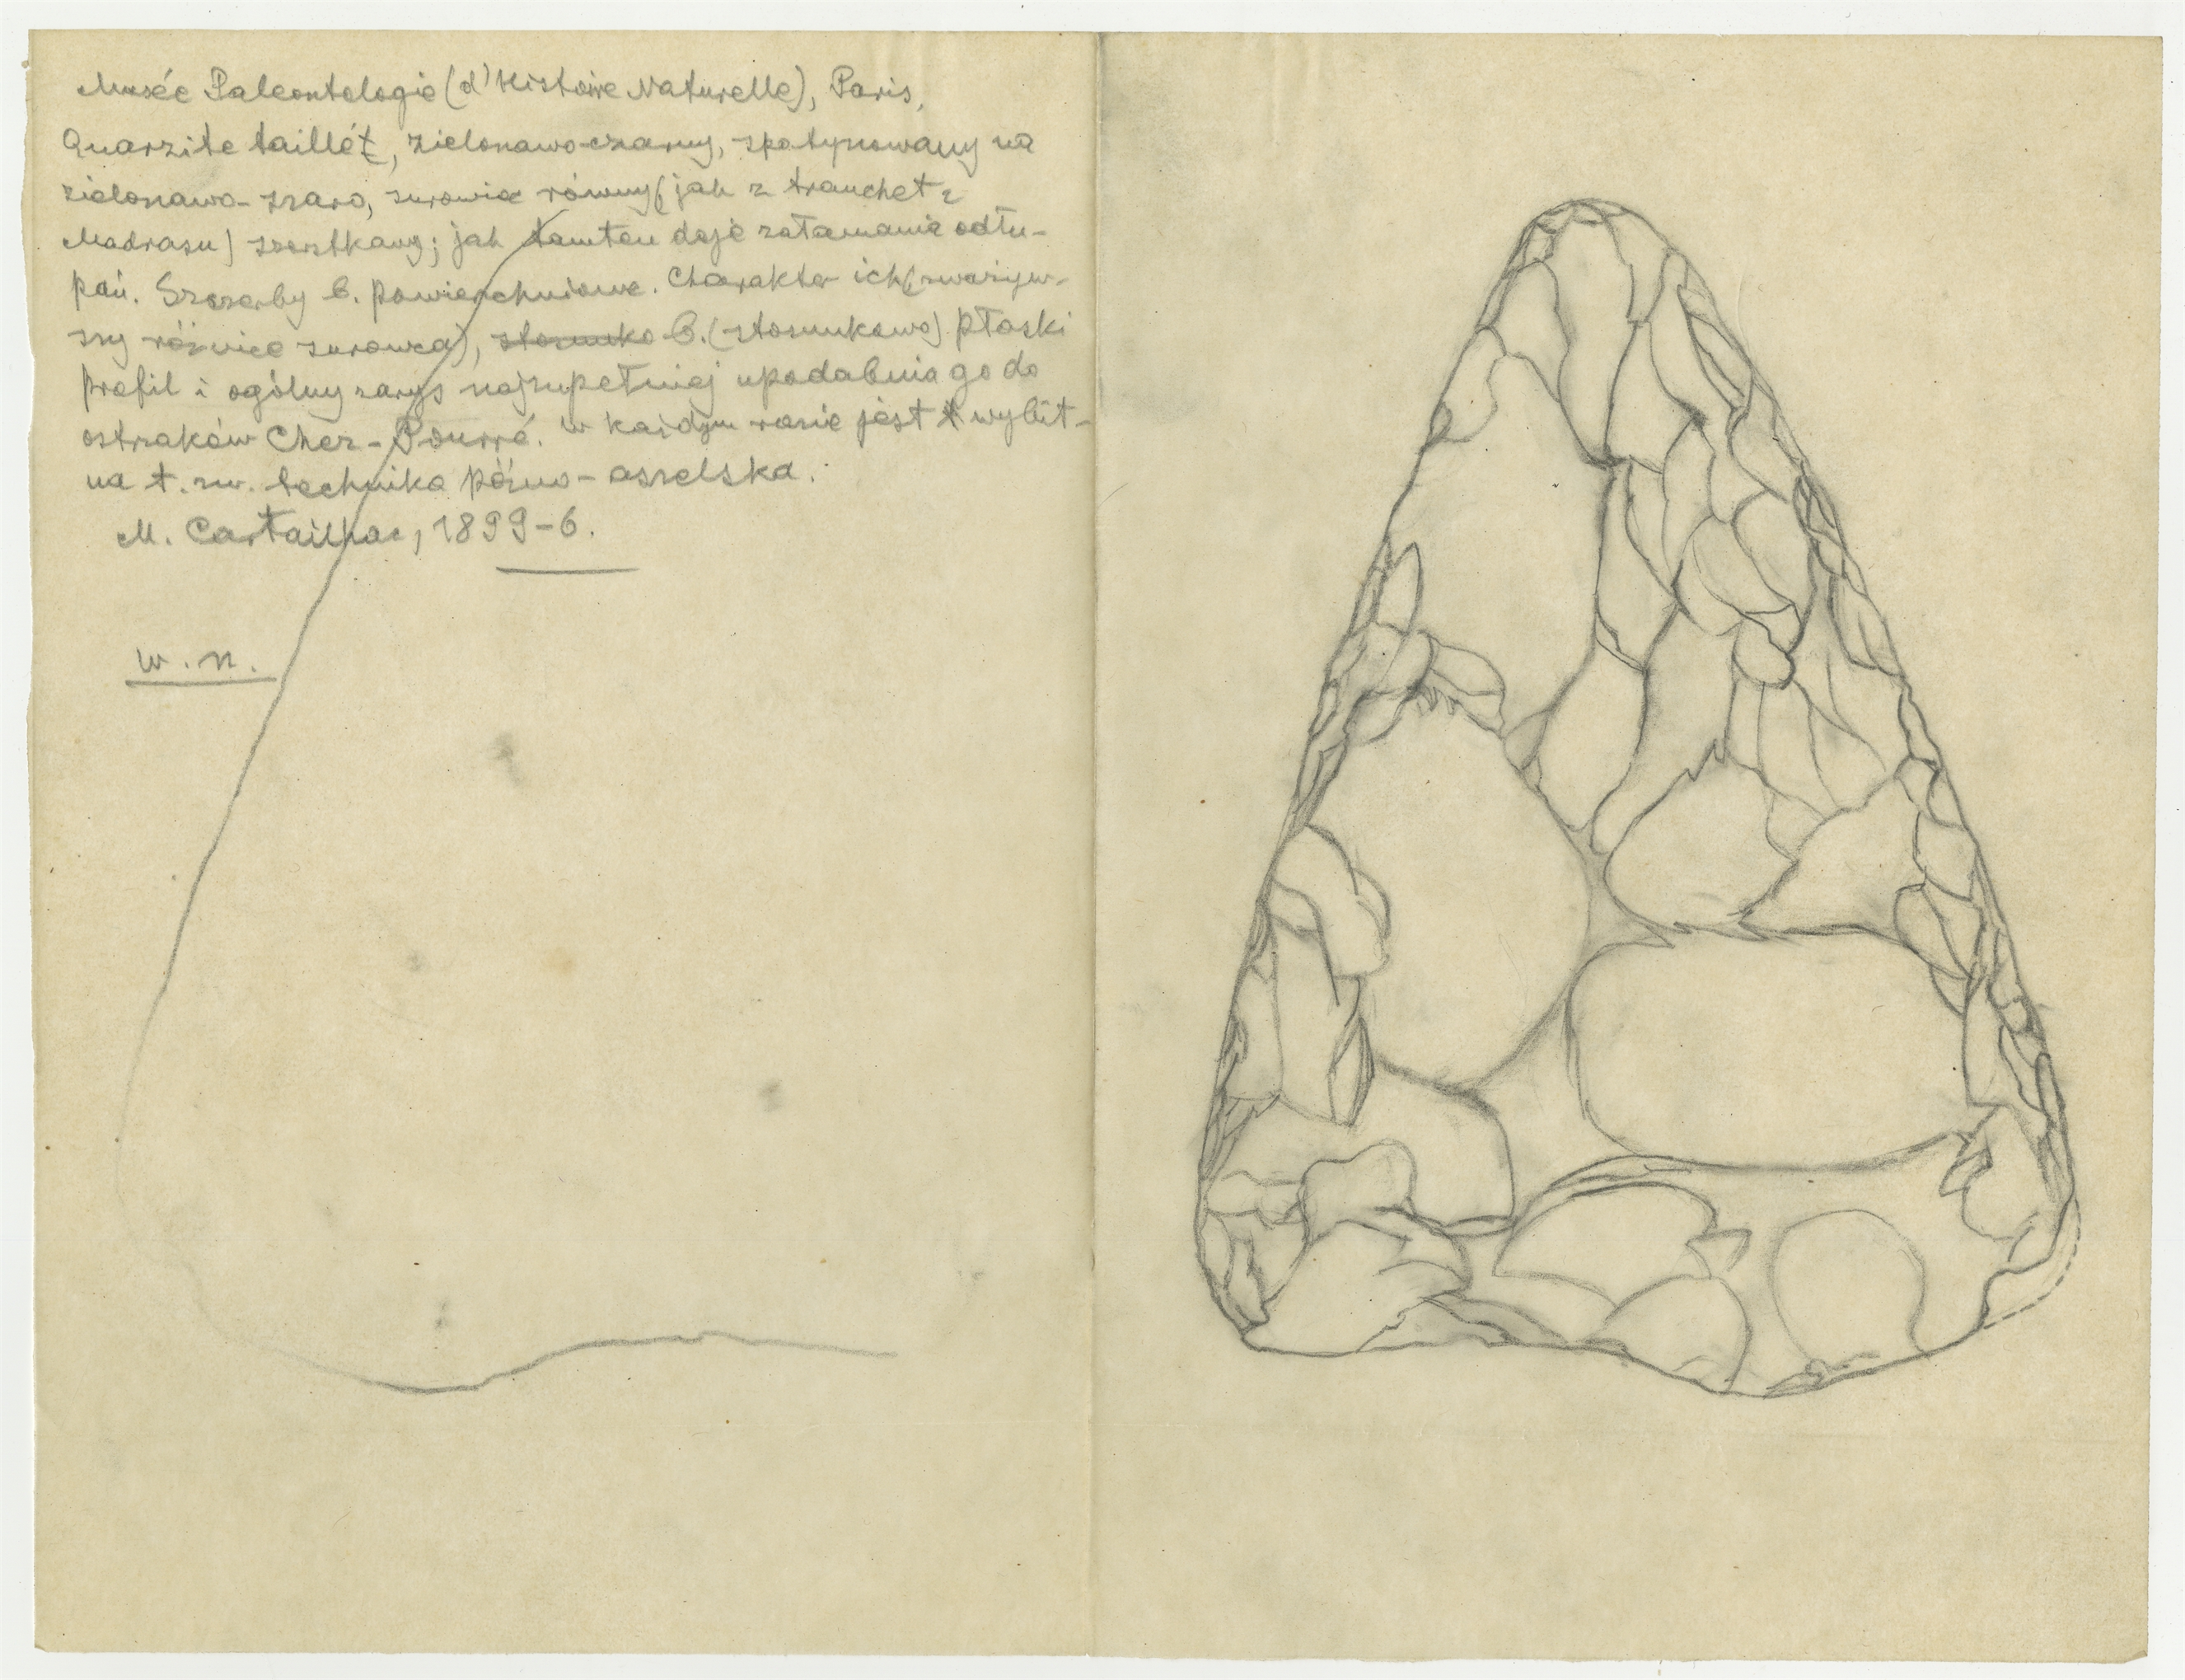 Musée Paleontologie (d'Histoire Naturelle), Paris,
Quarzite taillét, zielonawo-czarny, spatynowany na
zielonawo-szaro, surowiec równy (jak z tranchet z
Madrasu) szorstkawy; jak tamten daje załamania odłu-
pań. Szczerby b. powierzchniowe. Charakter ich (zważyw-
szy różnice surowca), stosunko b. (stosunkowo) płaski
profil i ogólny zarys najzupełniej upodabnia go do
ostraków Chez-Pourré. W każdym razie jest t wybit-
na t. zw. technika późno-aszelska.
M. Cartailhac, 1899-6.
w. n.